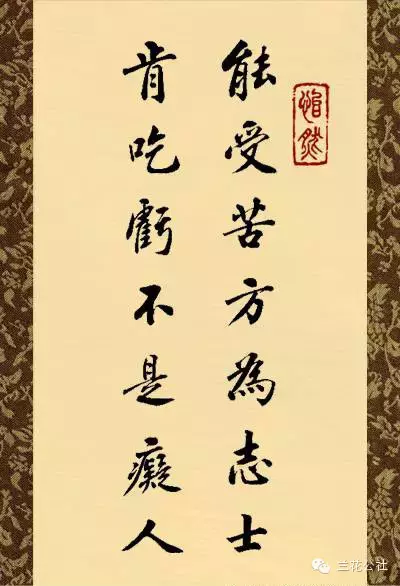 能受苦方為志士
肯吃虧不是癡人
兰花公社